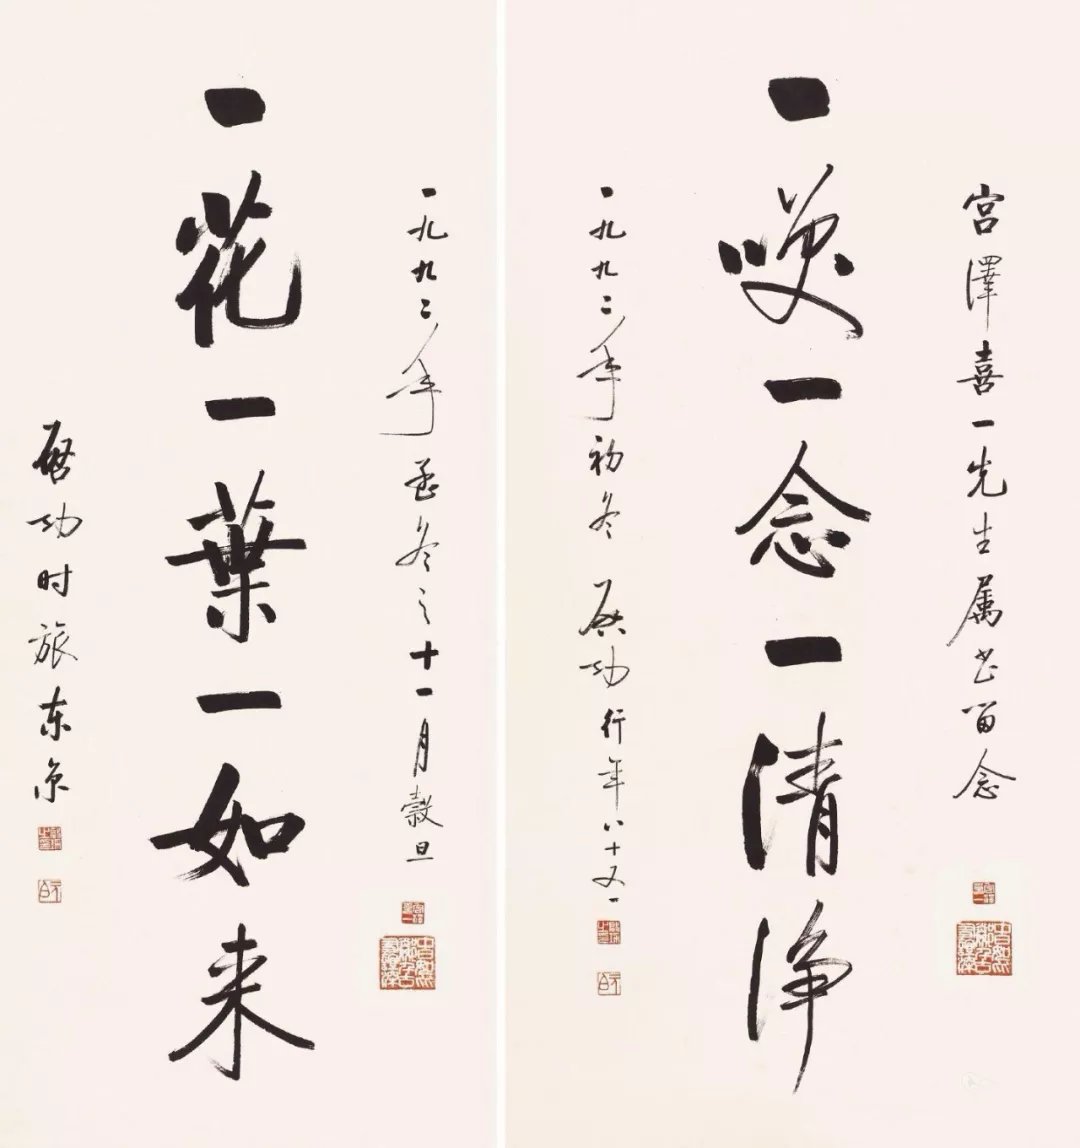 宮澤喜一先生属书留念
一咲一念一清浄
一九九二年初冬启功行年八十又一
一九九二年孟冬之十一月穀旦
一花一葉一如来
启功时旅东京